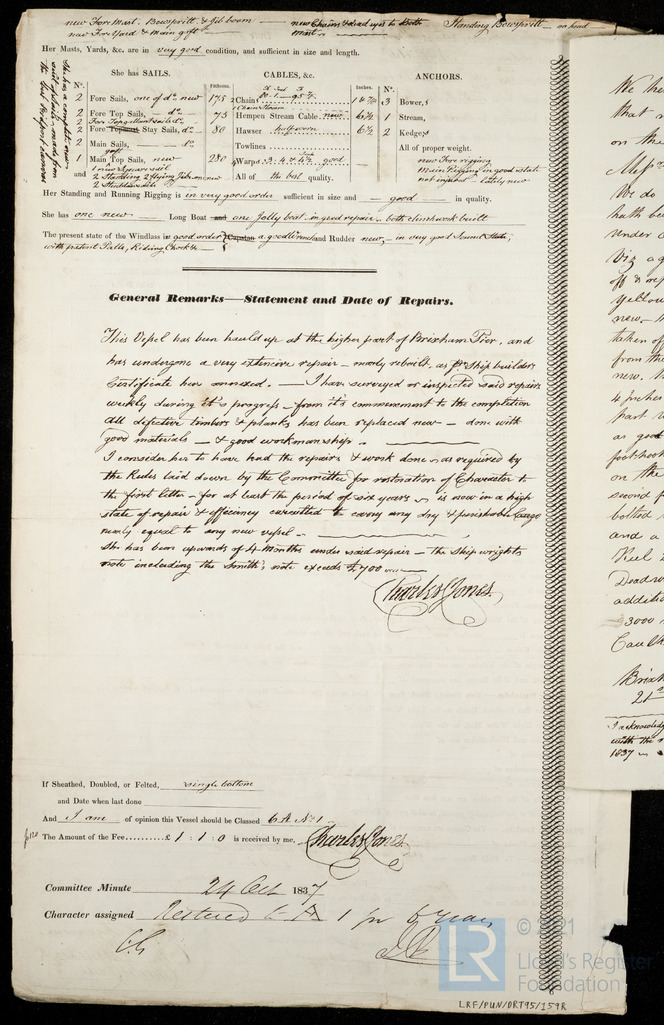 new Fore Mast. Bowspritt & Jib boom — new Chain & dead eyes to both Standing Bowspritt — on hand
new Fore Yard & Main gaft — Masts —
Her Masts, Yards, &c. are in very good condition, and sufficient in size and length.
She has SAILS.
N°.
2 Fore Sails, one of d°. new
2 Fore Top Sails, — d°.
2 Fore Topmast Stay Sails, d°—
2 Main Sails, — d°.
1 Main Top Sails, new
1 new Squaresail
and 2 Staysling 2 flying Jibs new
2 Studdsails
She has a complete new
CABLES, &c.
Fathoms. Inches.
175 Chain
75 Hempen Stream Cable new 6½
80 Hawser half worn 6½
Towlines
280 Warps 3. 4 & 4½ good
All of the best quality.
ANCHORS.
N°.
3 Bowers
1 Stream,
2 Kedges
All of proper weight.
new Fore rigging
Main Rigging in good state
not injured lately new
Her Standing and Running Rigging is in very good order sufficient in size and — good — in quality.
She has one new Long Boat and one Jolly boat in good repair — both clinch work built
The present state of the Windlass is good order Capstan a good Winch and Rudder new — in very good sound state,
with patent Palls, Riding Chocks &
General Remarks—Statement and Date of Repairs.
This Vessel has been hauld up at the higher part of Brixham Pier, and
has undergone a very extensive repair — nearly rebuilt, as pr Ship builders
Certificate her annexed. — I have surveyed or inspected said repairs
weekly during it's progress — from it's commencement to the completion
All defective timbers & planks has been replaced new — done with
good materials — & good workmanship. —
I consider her to have had the repairs & work done as required by
the Rules laid down by the Committee for restoration of Character to
the first letter — for at least the period of six years — is now in a high
state of repair & efficiency calculated to carry any dry & perishable Cargo
nearly equal to any new vessel. —
She has been upwards of 4 Months under said repair — the Shipwrights
note including the Smith's note exceeds £700
Charles Jones
If Sheathed, Doubled, or Felted, single bottom
and Date when last done
And I am of opinion this Vessel should be Classed 6 A N° 1 —
The Amount of the Fee..........£ 1 : 1 : 0 is received by me, Charles Jones
Committee Minute 24 Oct 1837
Character assigned Restored 6 A 1 for 6 Years
We ha
that
on the
We do
hath be
under
Viz a
off & rep
yellow
new. —
taken of
from the
new.
4 inches
part
as good
foothook
on the
second
bolted
and a
Keel
Dead w
additio
3000
Caulk
Brixh
21st
I acknowledge
with the
1837
© 2021
LR
Lloyd's Register
Foundation
LRF/PUN/DRT95/159R